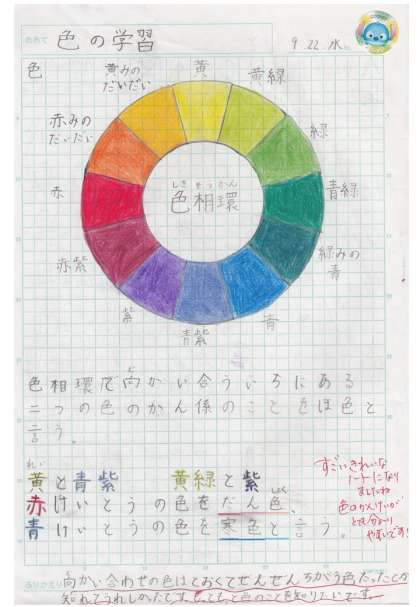 めあて 色の学習 9.22.水
色
黄みの
だいだい
黄
黄緑
赤みの
だいだい
緑
赤
しき そう かん
色相環
青緑
赤紫
緑みの
青
紫
青紫
青
む
色相環で向かい合ういちにある
二つの色のかん係のことをほ色と
言う。
れい
黄と青紫 黄緑と紫
しょく
赤けいとうの色をだん色、
青けいとうの色を寒色と言う。
すごいきれいな
ノートになり
ましたね
色のかんけいが
とてもわかり
やすいです!
ふりかえり 向かい合わせの色はとおくてぜんぜんちがう色だったことが
知れてうれしかったです。もっともっと色のことを知りたいです。